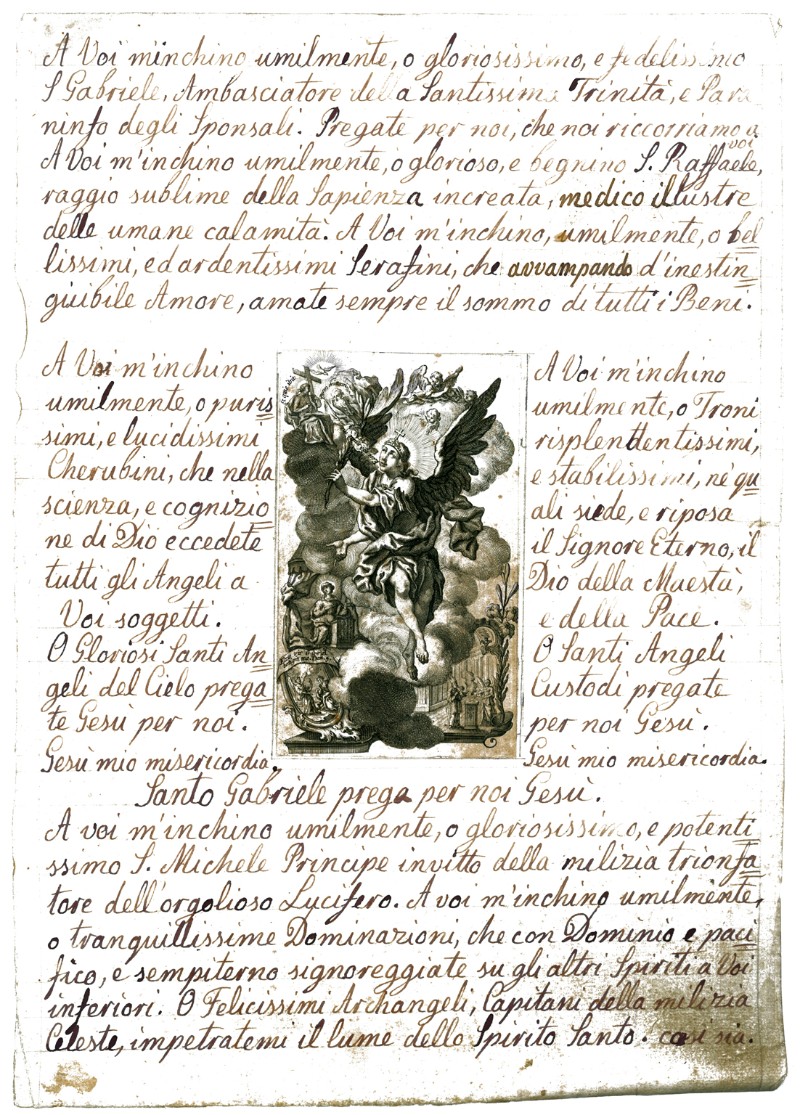 A Voi m'inchino umilmente, o gloriosissimo, e fedelissimo
S Gabriele, Ambasciatore della Santissima Trinità, e Para
ninfo degli Sponsali. Pregate per noi, che noi ricorriamo a
voi
A Voi m'inchino umilmente, o glorioso, e begnino S. Raffaele,
raggio sublime della Sapienza increata, medico illustre
delle umane calamità. A Voi m'inchino, umilmente, o bel
lissimi, ed ardentissimi Serafini, che avvampando d'inestin
guibile Amore, amate sempre il sommo di tutti i Beni.
A Voi m'inchino
umilmente, o puris
simi, e lucidissimi
Cherubini, che nella
scienza, e cognizio
ne di Dio eccedete
tutti gli Angeli a
Voi soggetti.
O Gloriosi Santi An
geli del Cielo prega
te Gesù per noi.
Gesù mio misericordia.
A Voi m'inchino
umilmente, o Troni
risplendentissimi,
e stabilissimi, né qu
ali siede, e riposa
il Signore Eterno, il
Dio della Maestà,
e della Pace.
O Santi Angeli
Custodi pregate
per noi Gesù.
Gesù mio misericordia.
Santo Gabriele prega per noi Gesù.
A voi m'inchino umilmente, o gloriosissimo, e potenti
ssimo S. Michele Principe invitto della milizia trionfa
tore dell'orgolioso Lucifero. A voi m'inchino umilmente,
o tranquillissime Dominazioni, che con Dominio e paci
fico, e sempiterno signoreggiate su gli altri Spiriti a Voi
inferiori. O Felicissimi Archangeli, Capitani della milizia
Celeste, impetratemi il lume dello Spirito Santo. così sia.